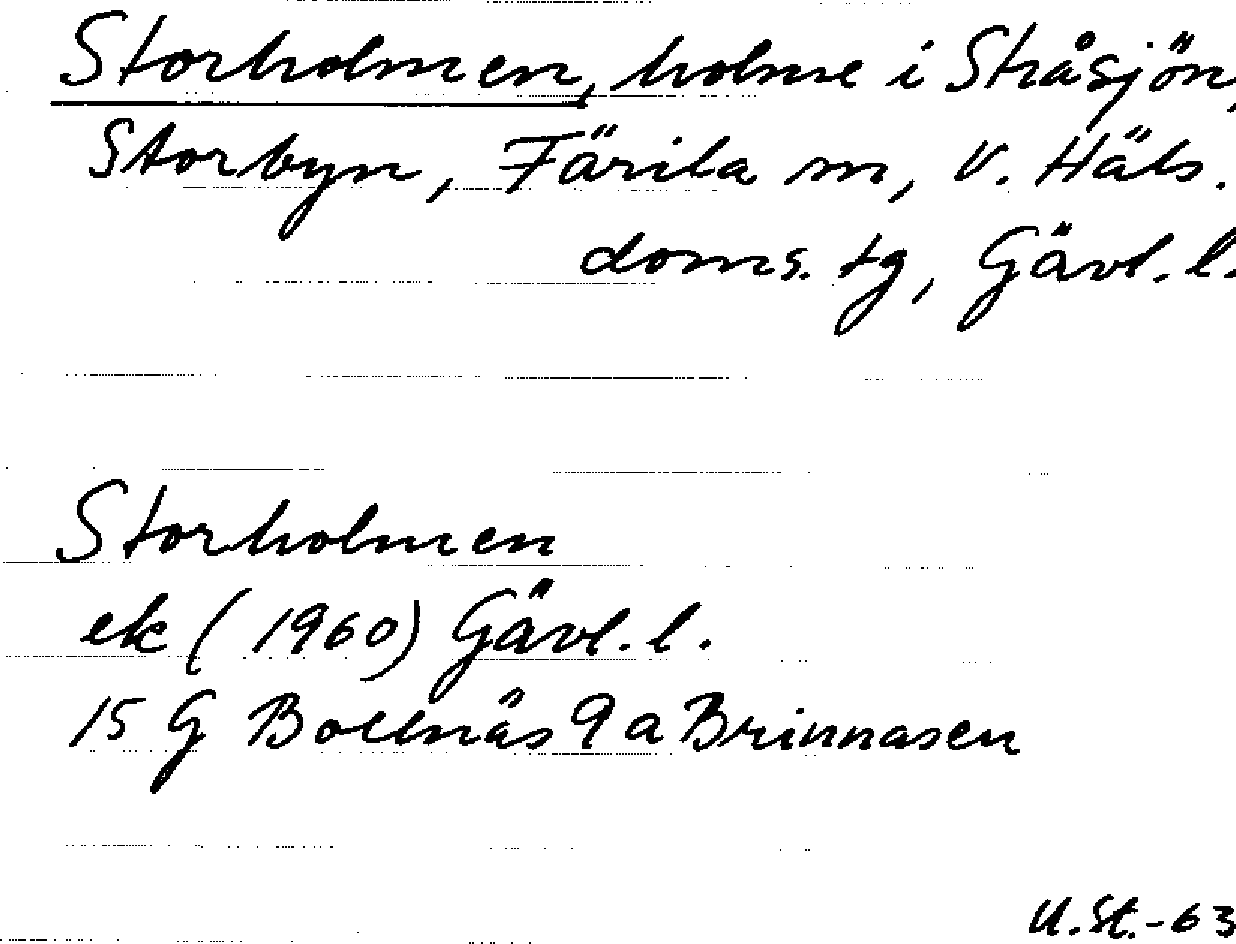 Storholmen, holme i Stråsjön,
Storbyn, Färila sn, V. Häls.
doms. tg, Gävl. l.
Storholmen
ek (1960) Gävl. l.
15 G Bollnäs 9 a Brinnåsen
U.St.-63